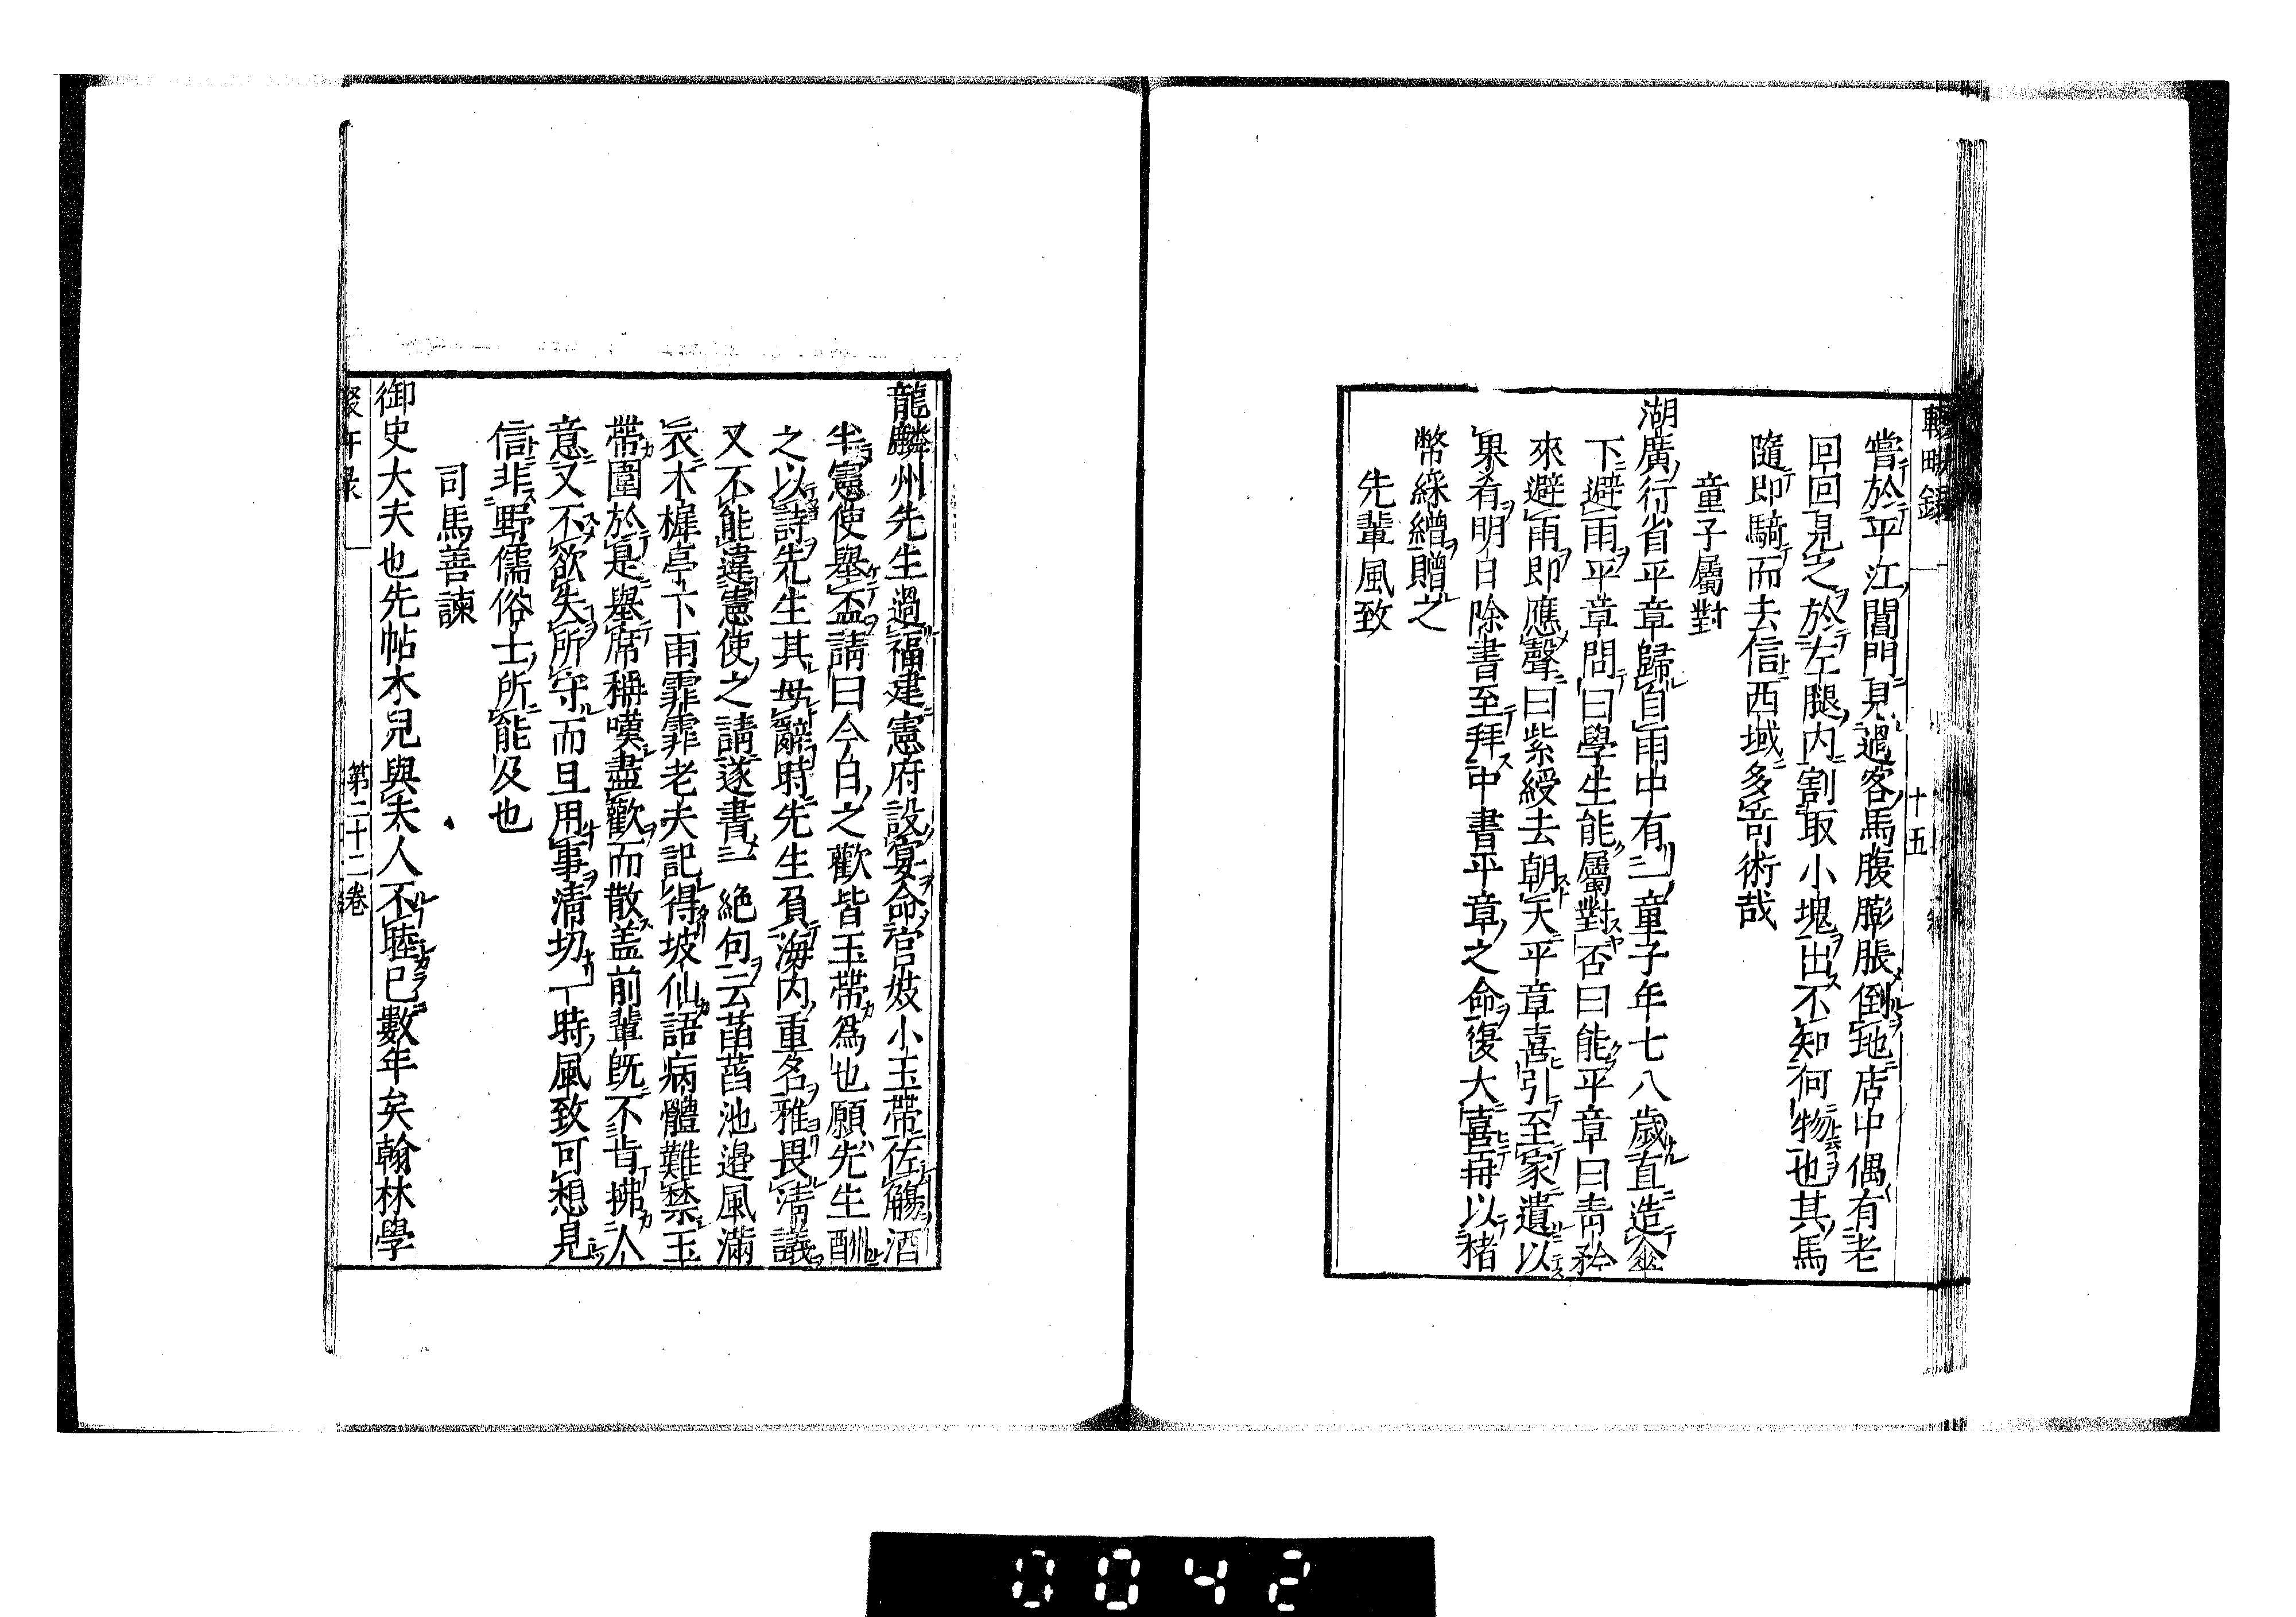 輟畊錄 十五
嘗於平江閶門見過客馬腹膨脹倒地店中偶有老
回回見之於左腿內割取小塊出不知何物也其馬
隨即騎而去信西域多奇術哉
童子屬對
湖廣行省平章歸自雨中有一童子年七八歲直造傘
下避雨平章問曰學生能屬對否曰能平章曰青衿
來避雨即應聲曰紫綬去朝天平章喜引至家遺以
果肴明日除書至拜中書平章之命復大喜再以楮
幣綵繒贈之
先輩風致
龍麟州先生過福建憲府設宴命官妓小玉帶佐觴酒
半憲使舉盃請曰今日之歡皆玉帶爲也願先生酬
之以詩先生其毋辭時先生負海內重名雅畏清議
又不能違憲使之請遂書一絕句云菡萏池邊風滿
衣木樨亭下雨霏霏老夫記得坡仙語病體難禁玉
帶圍於是舉席稱嘆盡歡而散盖前輩旣不肯拂人
意又不欲失所守而且用事清切一時風致可想見
信非野儒俗士所能及也
司馬善諫
御史大夫也先帖木兒與夫人不睦已數年矣翰林學
第二十二卷
0042